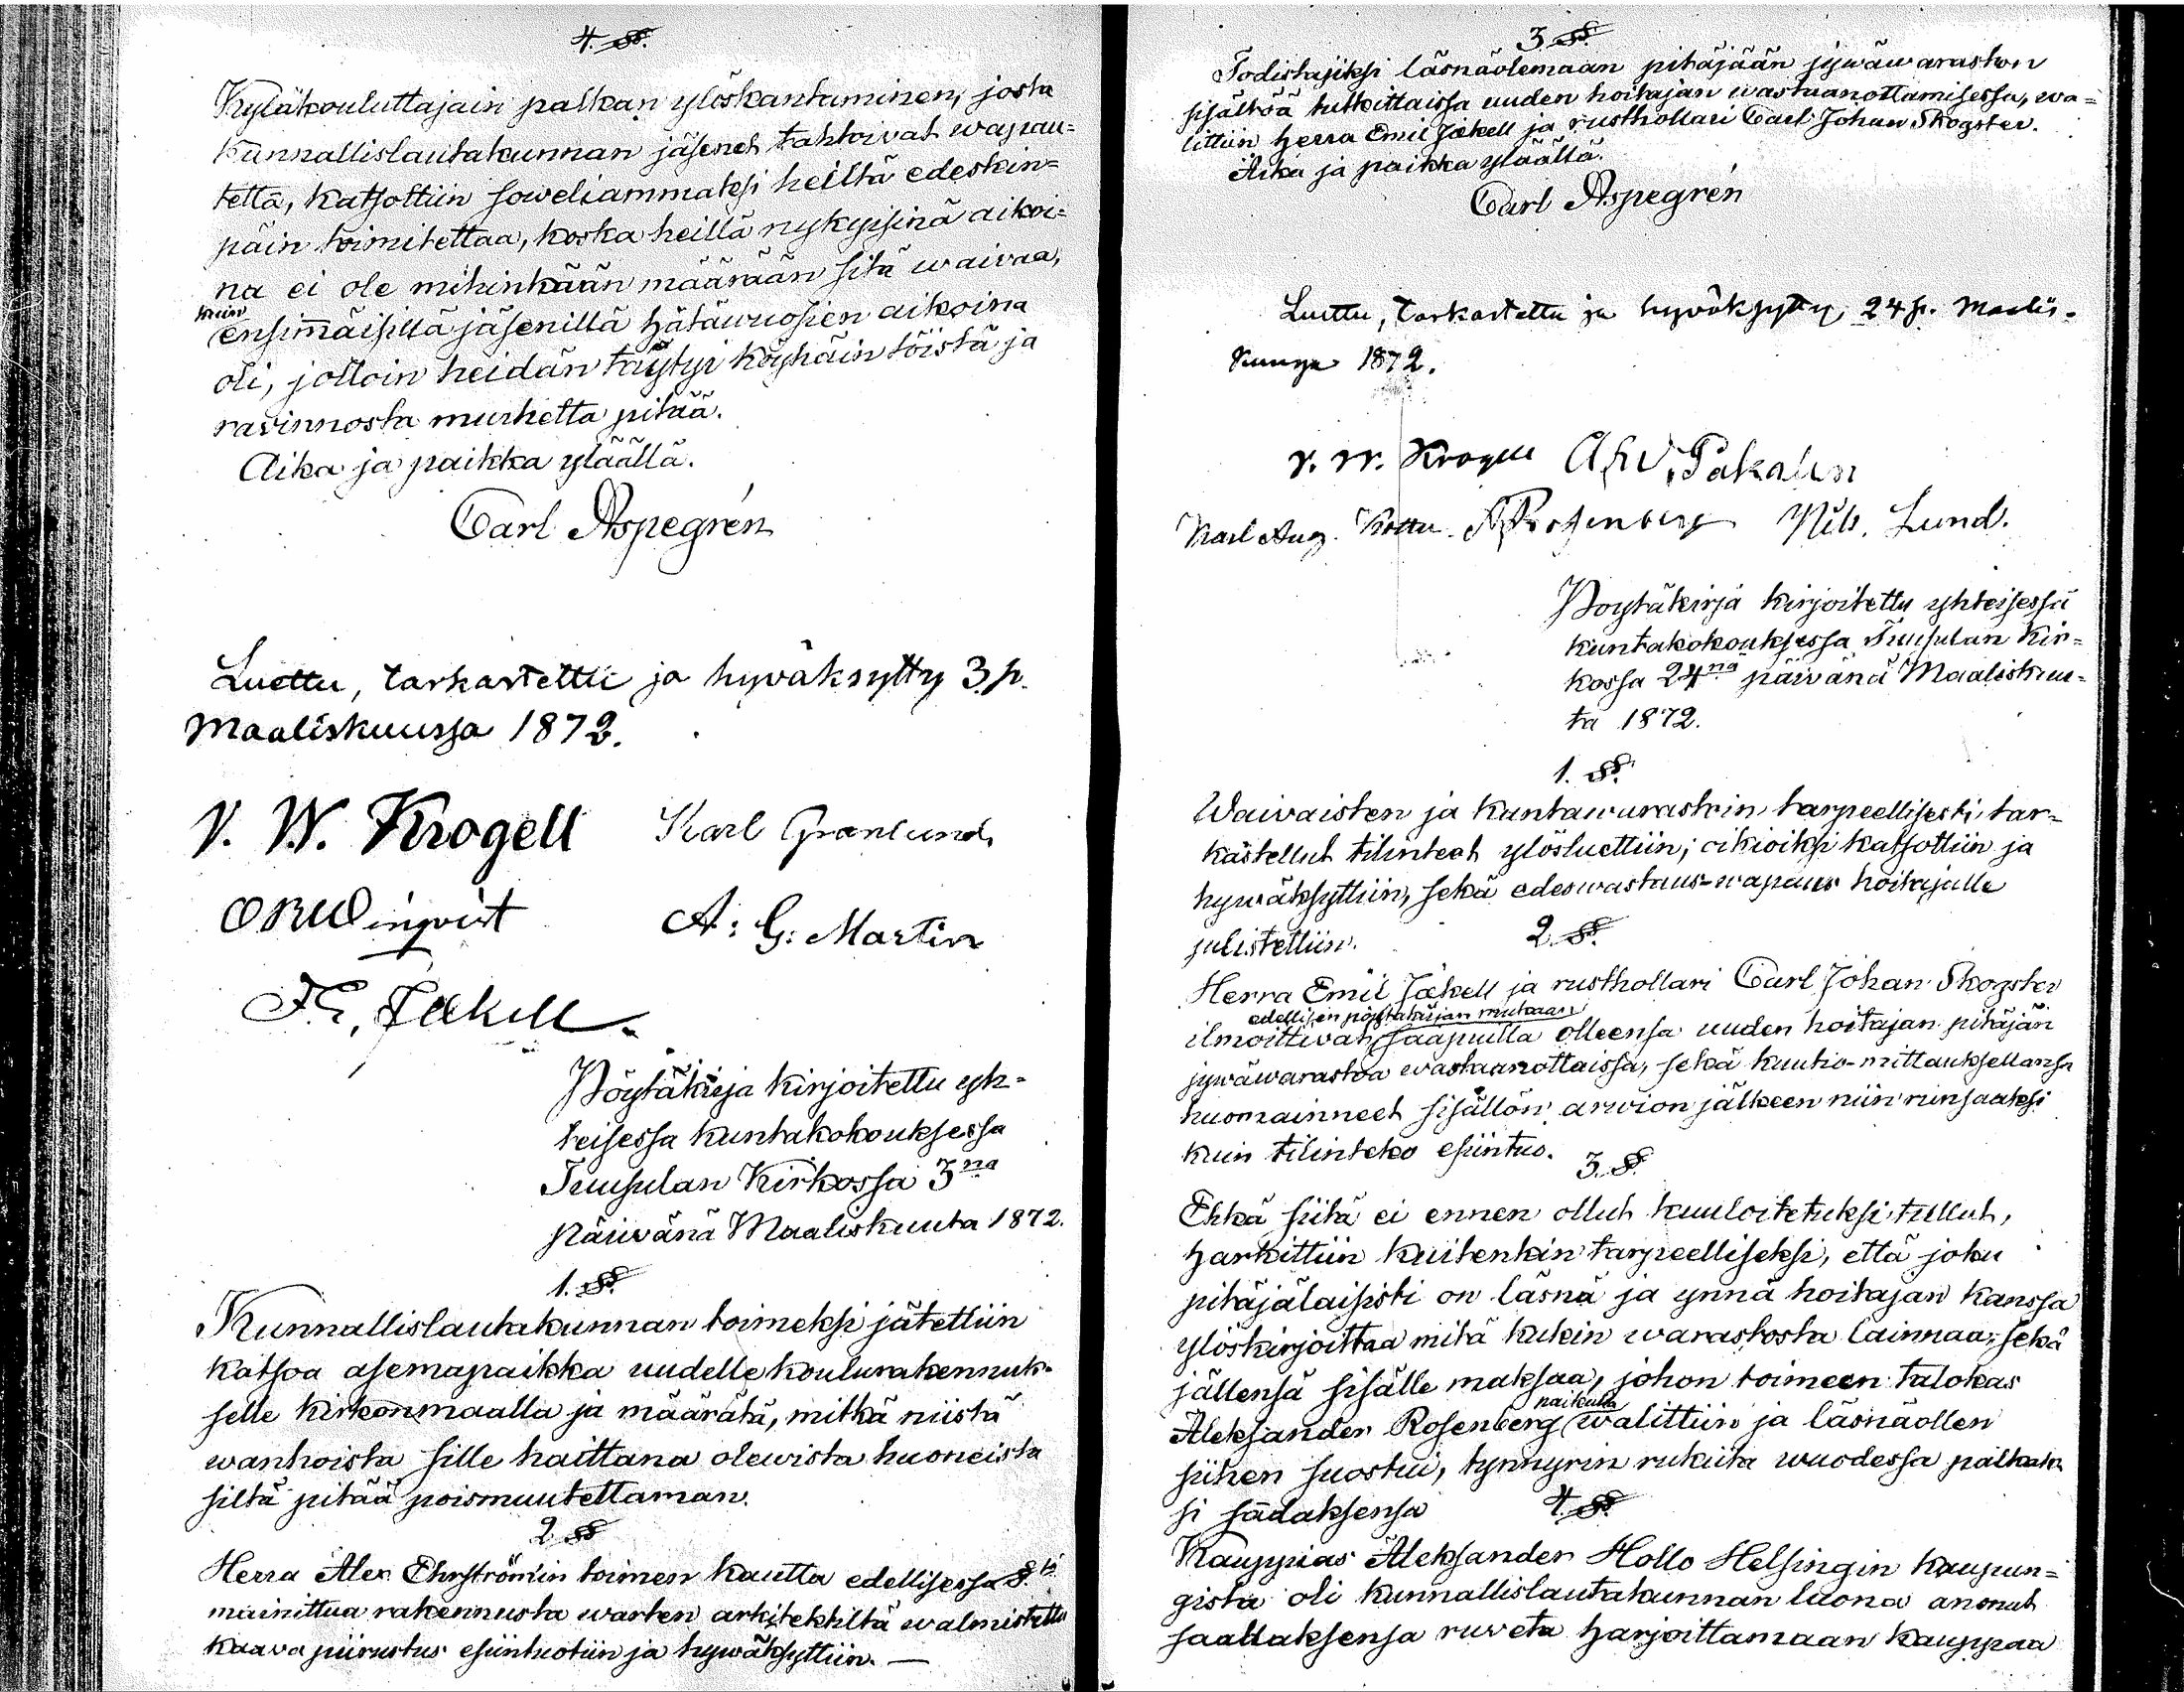 4. §§.
Kyläkouluttajain palkan ylöskantaminen, josta
Kunnallislautakunnan jäsenet tahtoivat wapau=
tetta, katsottiin soweliammaksi heiltä edeskin=
päin toimitettaa, koska heillä nykyisinä aikoi=
na ei ole mihinkään määrään sitä waivaa,
kuin
ensimmäisillä jäsenillä hätäwuosien aikoina
oli, jolloin heidän täytyi köyhäin töistä ja
ravinnosta murhetta pitää.
Aika ja paikka yläällä.
Carl Aspegrén
Luettu, tarkastettu ja hyväksytty 3 p.
Maaliskuussa 1872.
V. W. Krogell Karl Granlund
A: G: Martin
F. E. Jäkell
Pöytäkirja kirjoitettu yh=
teisessa kuntakokouksessa
Tuusulan Kirkossa 3na
päiwänä Maaliskuuta 1872.
1. §§.
Kunnallislautakunnan toimeksi jätettiin
katsoa asemapaikka uudelle koulurakennuk=
selle kirkonmaalla ja määrätä, mitkä niistä
wanhoista sille haittana olewista huoneista
siltä pitää poismuutettaman.
2 §§
Herra Alex Ehrströmin toimen kautta edellisessa §:ss
mainittua rakennusta warten arkitektiltä walmistettu
kaava piirustus esiintuotiin ja hywäksyttiin. —
3. §§.
Todistajiksi läsnäolemaan pitäjään jywäwaraston
sisältöä tutkittaissa uuden hoitajan wastaanottamisessa, wa=
littiin herra Emil Jäkell ja rusthollari Carl Johan Skogster.
Aika ja paikka yläällä.
Carl Aspegrén
Luettu, tarkastettu ja hyväksytty 24 p. Maalis-
kuuta 1872.
V. W. Krogell A. W. Pakalen
Karl Aug. A Rosenberg Nils. Lund.
Poytäkirja kirjoitettu yhteisessä
kuntakokouksessa Tuusulan Kir=
kossa 24na päiwänä Maaliskuu=
ta 1872.
1. §§.
Waivaisten ja kuntawarastoin tarpeellisesti tar=
kastellut tilinteot ylösluettiin; oikioiksi katsottiin ja
hywäksyttiin, sekä edeswastaus-wapaus hoitajalle
julistettiin.
2 §.
Herra Emil Jäkell ja rusthollari Carl Johan Skogster
edellisen pöytäkirjan mukaan
ilmoittivat saapuilla olleensa uuden hoitajan pitäjän
jywäwarastoa wastaanottaissa, sekä kuutio-mittauksellansa
huomainneet sisällön arwion jälkeen niin runsaaksi
kuin tilinteko esiintuo.
3. §.
Ehkä siitä ei ennen ollut kuuloitetuksi tullut,
harkittiin kuitenkin tarpeelliseksi, että joku
pitäjäläisisti on läsnä ja ynnä hoitajan kanssa
ylöskirjoittaa mitä kukin warastosta lainnaa, sekä
jällensä sisälle maksaa, johon toimeen talokas
paikulla
Aleksander Rosenberg walittiin ja läsnäollen
siihen suostui, tynnyrin rukiita wuodessa palkak=
si sādaksensa
4. §§.
Kauppias Aleksander Hollo Helsingin kaupun=
gista oli kunnallislautakunnan luona anonut
saadaksensa ruveta harjoittamaan kauppaa